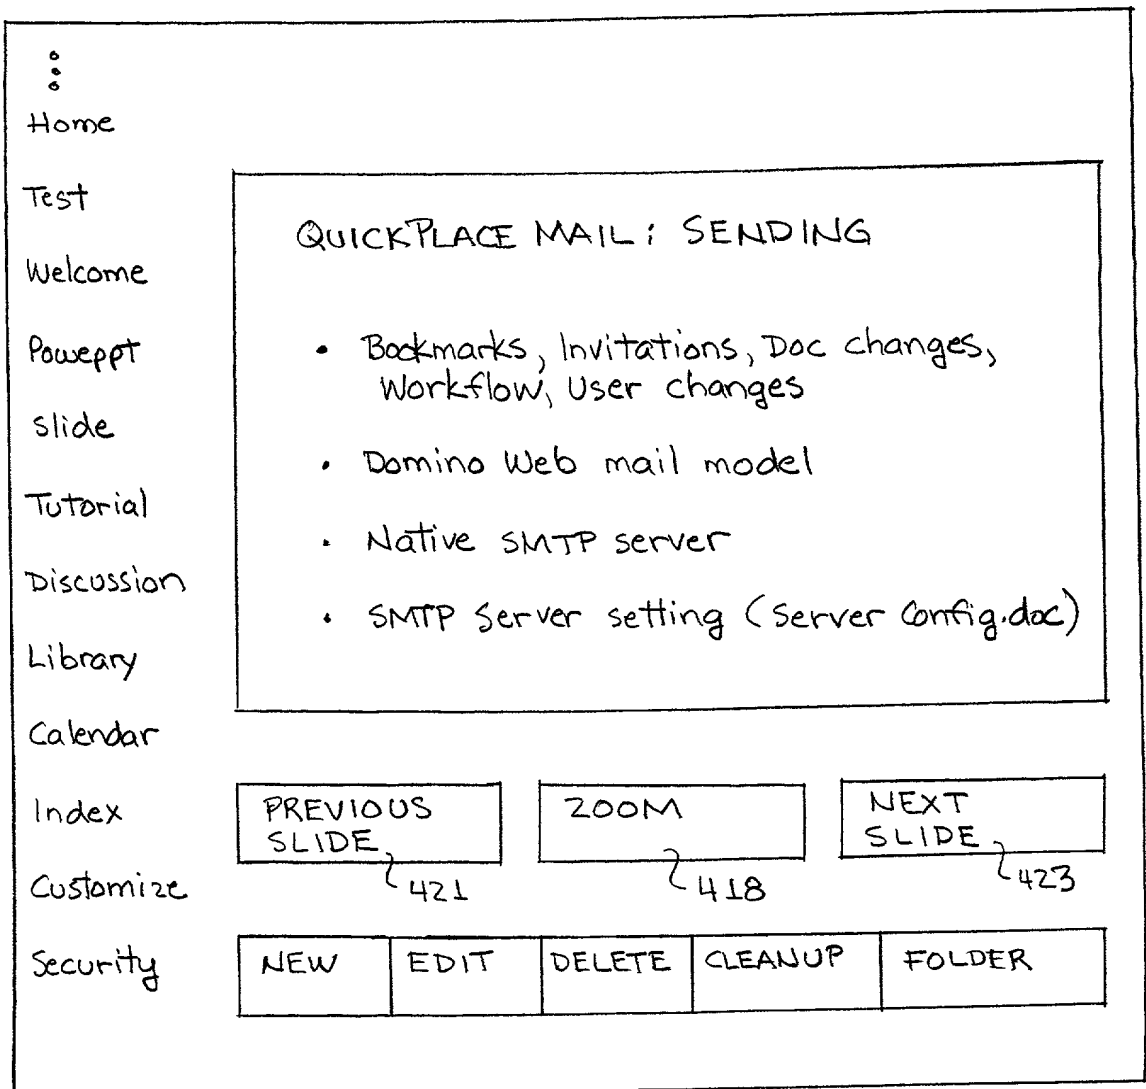 Home
Test
Welcome
Poweppt
Slide
Tutorial
Discussion
Library
Calendar
Index
Customize
Security
QUICKPLACE MAIL: SENDING
• Bookmarks, Invitations, Doc changes,
Workflow, User changes
• Domino Web mail model
• Native SMTP server
• SMTP Server setting (Server Config.doc)
PREVIOUS
SLIDE
421
ZOOM
418
NEXT
SLIDE
423
NEW
EDIT
DELETE
CLEANUP
FOLDER